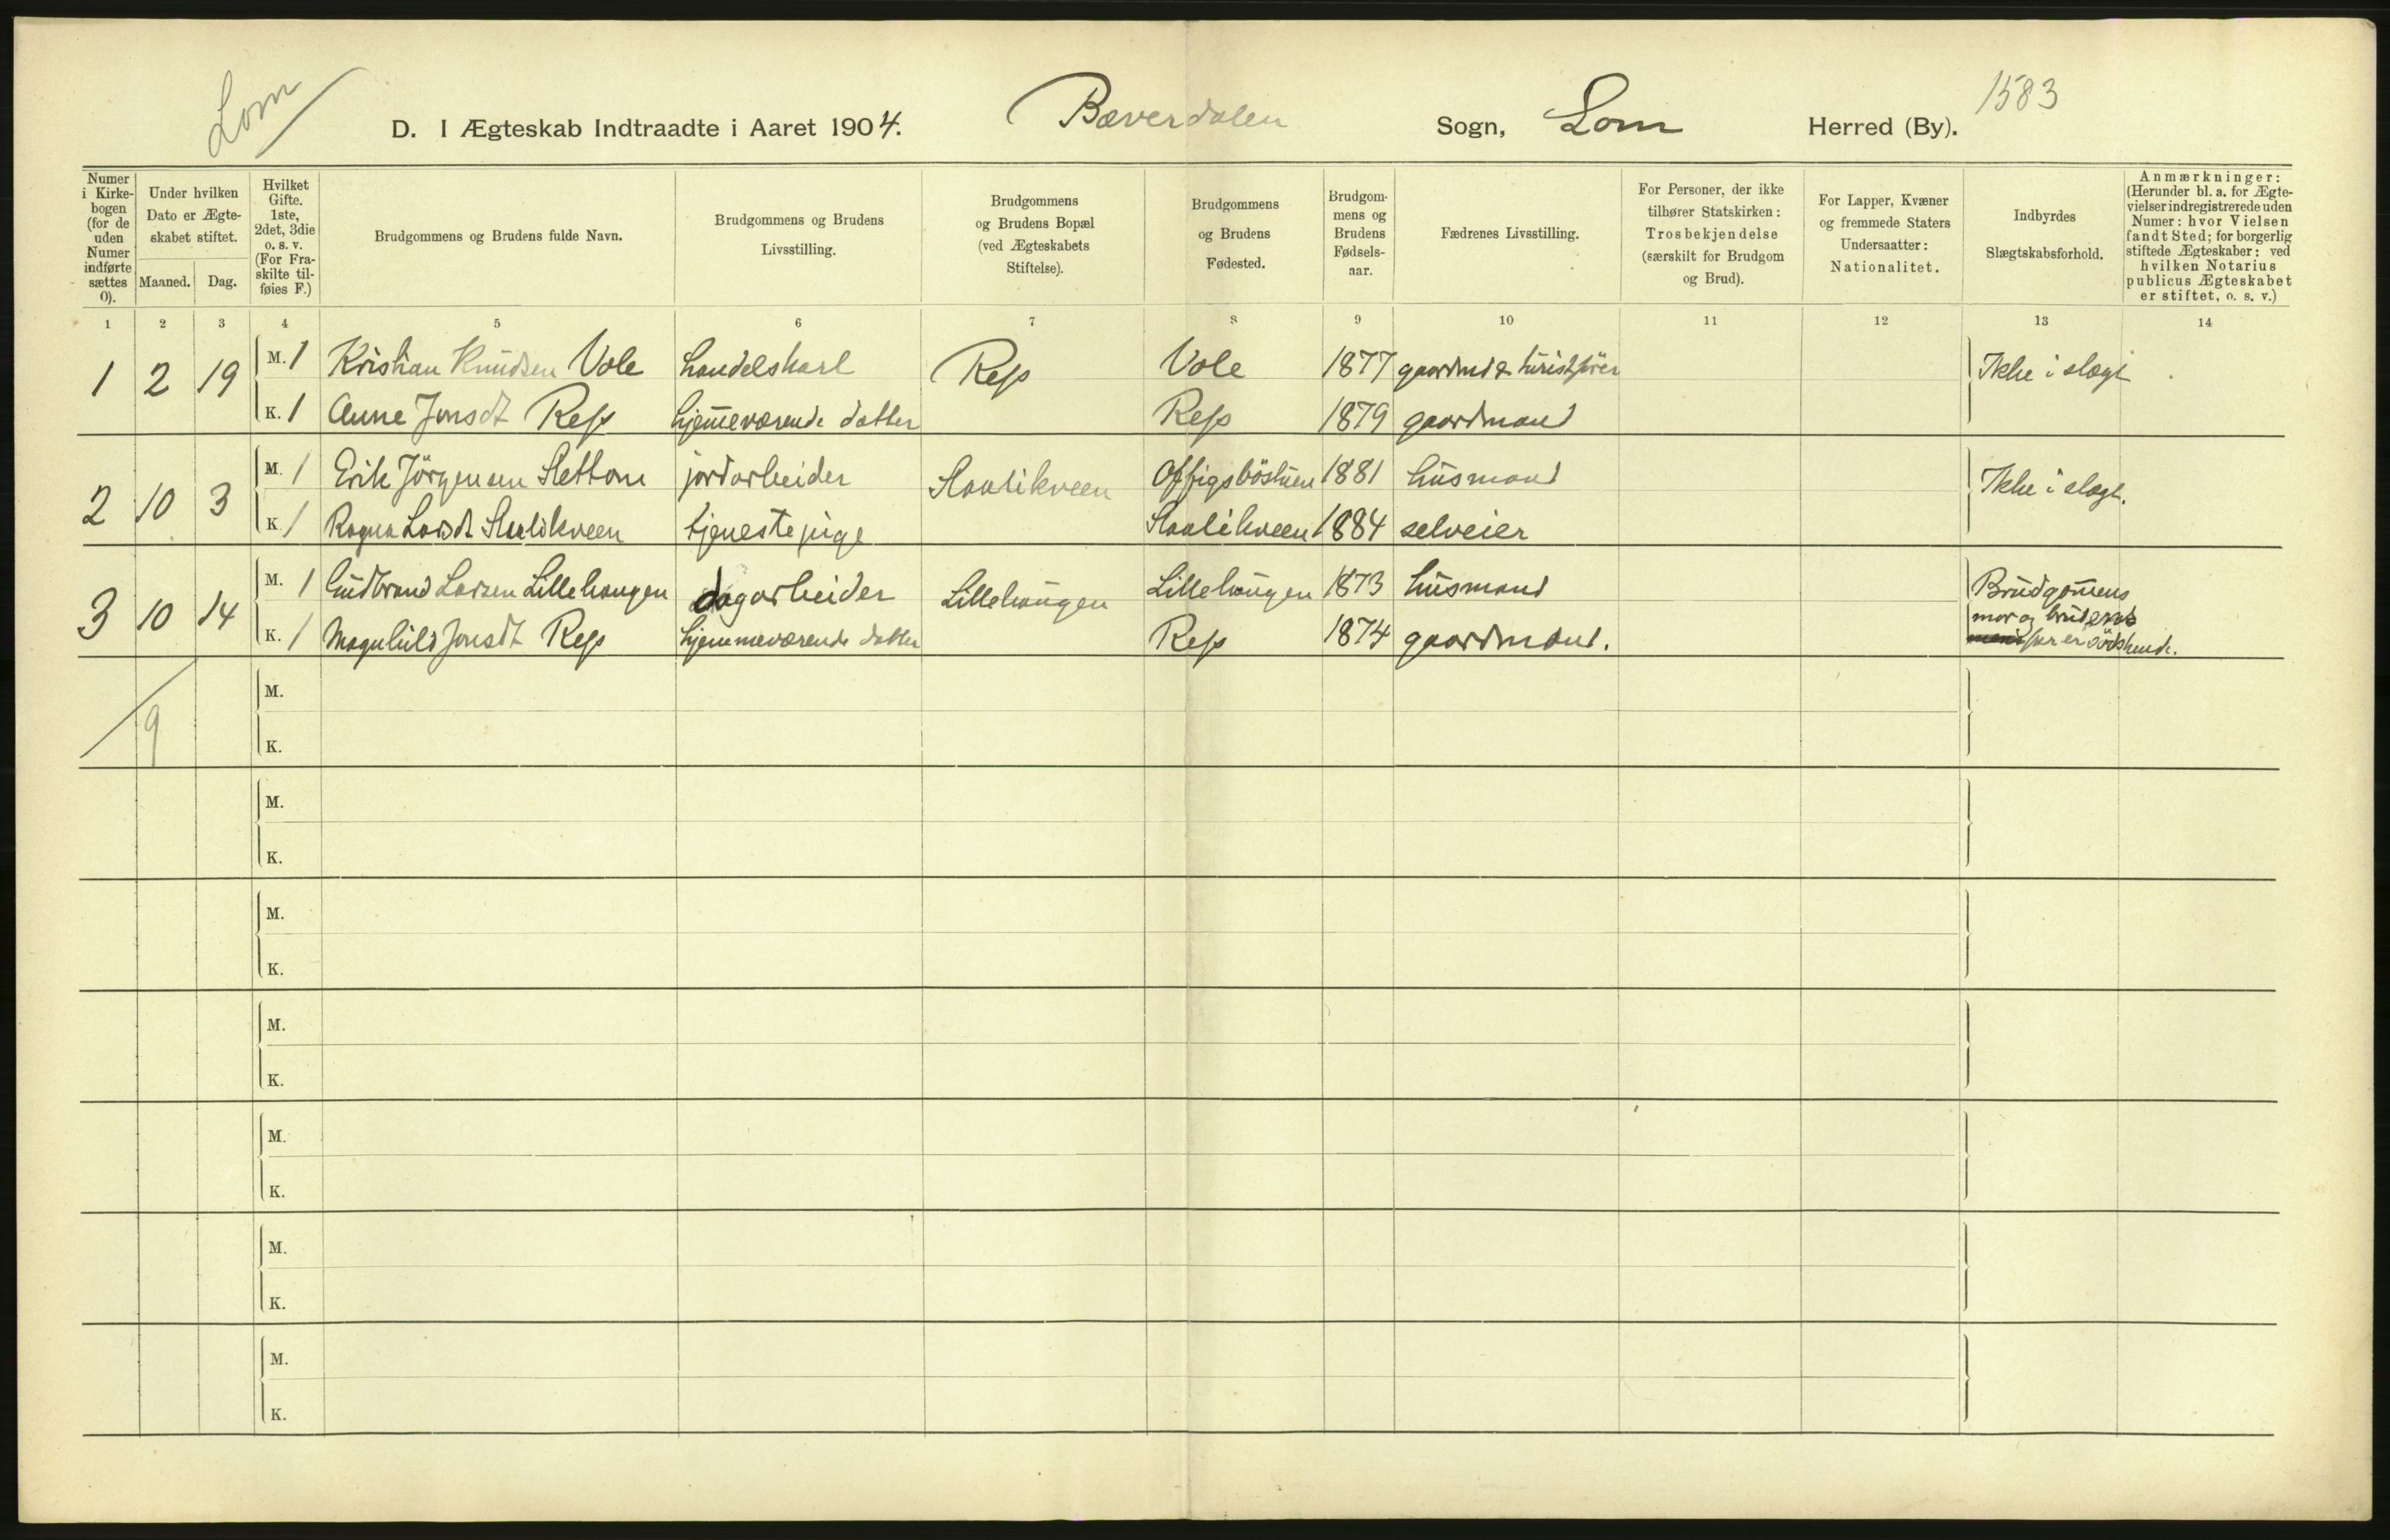 Lom
1583
D. I Ægteskab Indtraadte i Aaret 1904. Bæverdalen Sogn, Lom Herred (By).
Numer i Kirke-bogen (for de uden Numer indførte sættes 0).
Under hvilken Dato er Ægte-skabet stiftet.
Maaned. Dag.
Hvilket Gifte. 1ste, 2det, 3die o. s. v. (For Fra-skilte til-føies F.)
Brudgommens og Brudens fulde Navn.
Brudgommens og Brudens Livsstilling.
Brudgommens og Brudens Bopæl (ved Ægteskabets Stiftelse).
Brudgommens og Brudens Fødested.
Brudgom-mens og Brudens Fødsels-aar.
Fædrenes Livsstilling.
For Personer, der ikke tilhører Statskirken: Trosbekjendelse (særskilt for Brudgom og Brud).
For Lapper, Kvæner og fremmede Staters Undersaatter: Nationalitet.
Indbyrdes Slægtskabsforhold.
Anmærkninger: (Herunder bl. a. for Ægte-vielser indregistrerede uden Numer: hvor Vielsen fandt Sted; for borgerlig stiftede Ægteskaber: ved hvilken Notarius publicus Ægteskabet er stiftet, o. s. v.)
1 2 3 4 5 6 7 8 9 10 11 12 13 14
1 2 19 M. 1 Kristian Knudsen Vole handelskarl Reps Vole 1877 gaardmd & turistfører Ikke i slægt
K. 1 Anne Jonsdt Reps hjemeværende datter Reps 1879 gaardmand
2 10 3 M. 1 Erik Jörgensen Slettom jordarbeider Staalikveen 1881 husmand Ikke i slægt.
K. 1 Ragna Larsdt tjenestepige Staalikveen 1884 selveier
3 10 14 M. 1 Gudbrand Larsen Lillehaugen dagarbeider Lillehaugen Lillehaugen 1873 husmand Brudgomens
mor og brudens
K. 1 Magnhild Jonsdt Reps hjemmeværende datter Reps 1874 gaardmand. far er södskende.
9
M.
K.
M.
K.
M.
K.
M.
K.
M.
K.
M.
K.
M.
K.